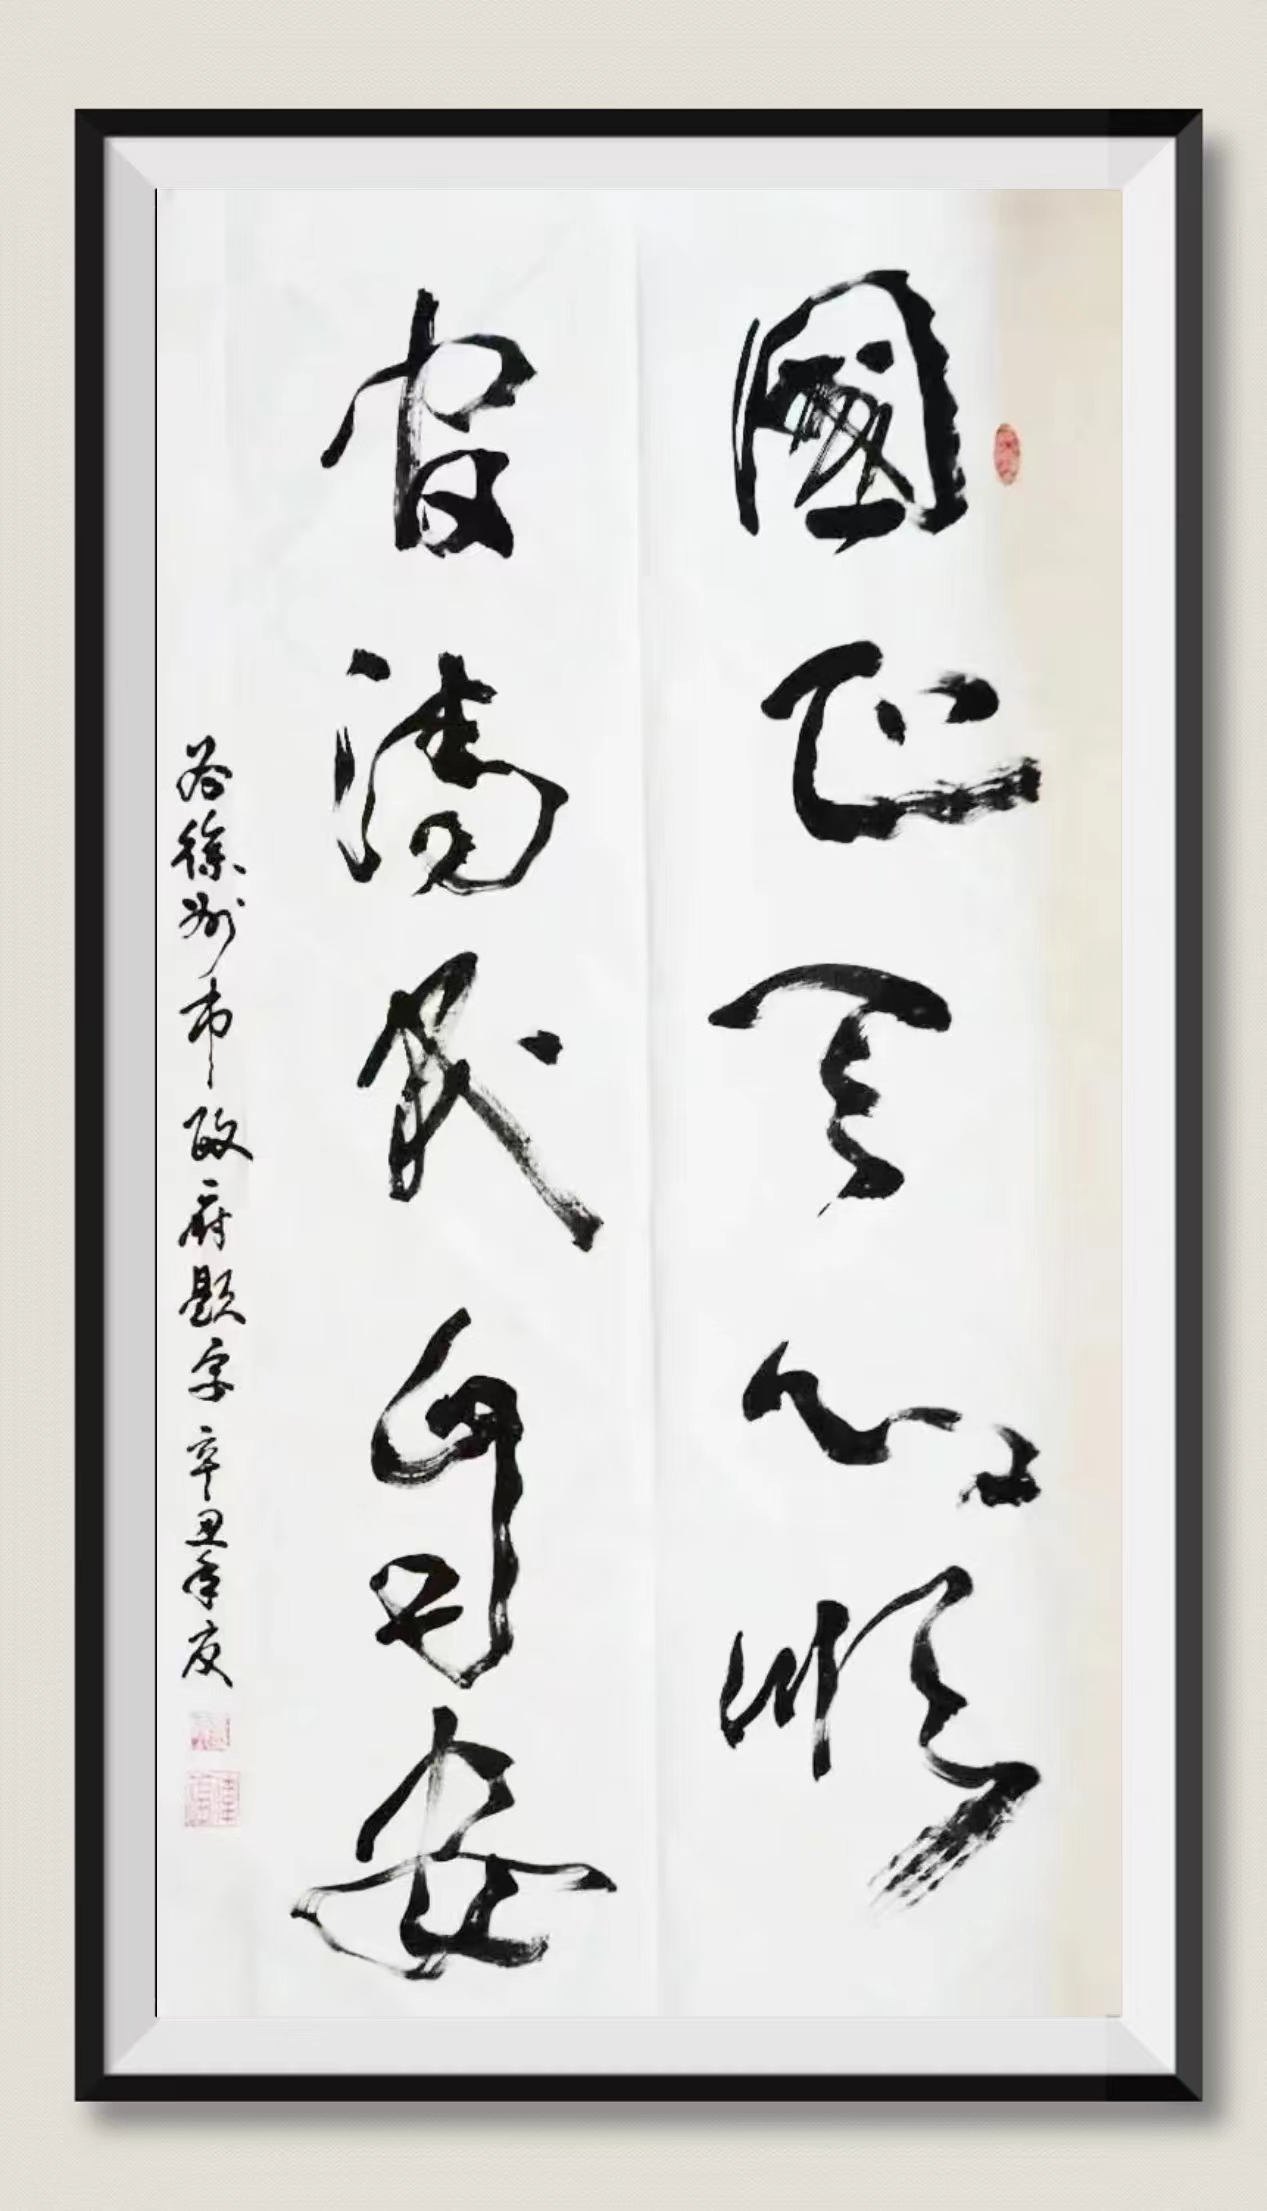 國正天心順
官清民自安
为徐州市政府題字辛丑年夏